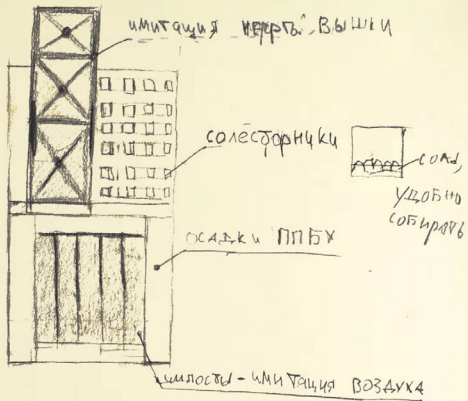 имитация нефт. вышки
солесборники
соль,
удобно
собирать
осадки ППБУ
имитация воздуха